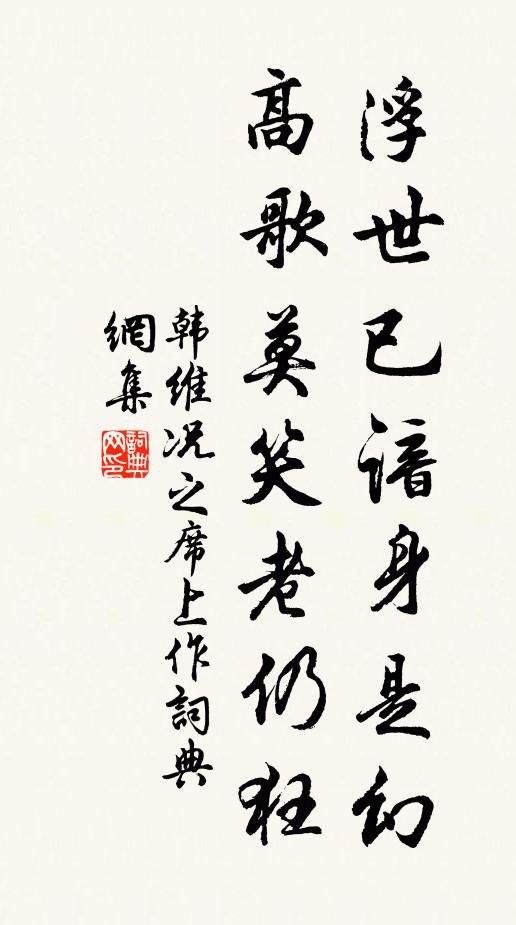 浮世已諳身是幻
高歌莫笑老仍狂
韩維况之席上作詞典
網集
詞典
网印